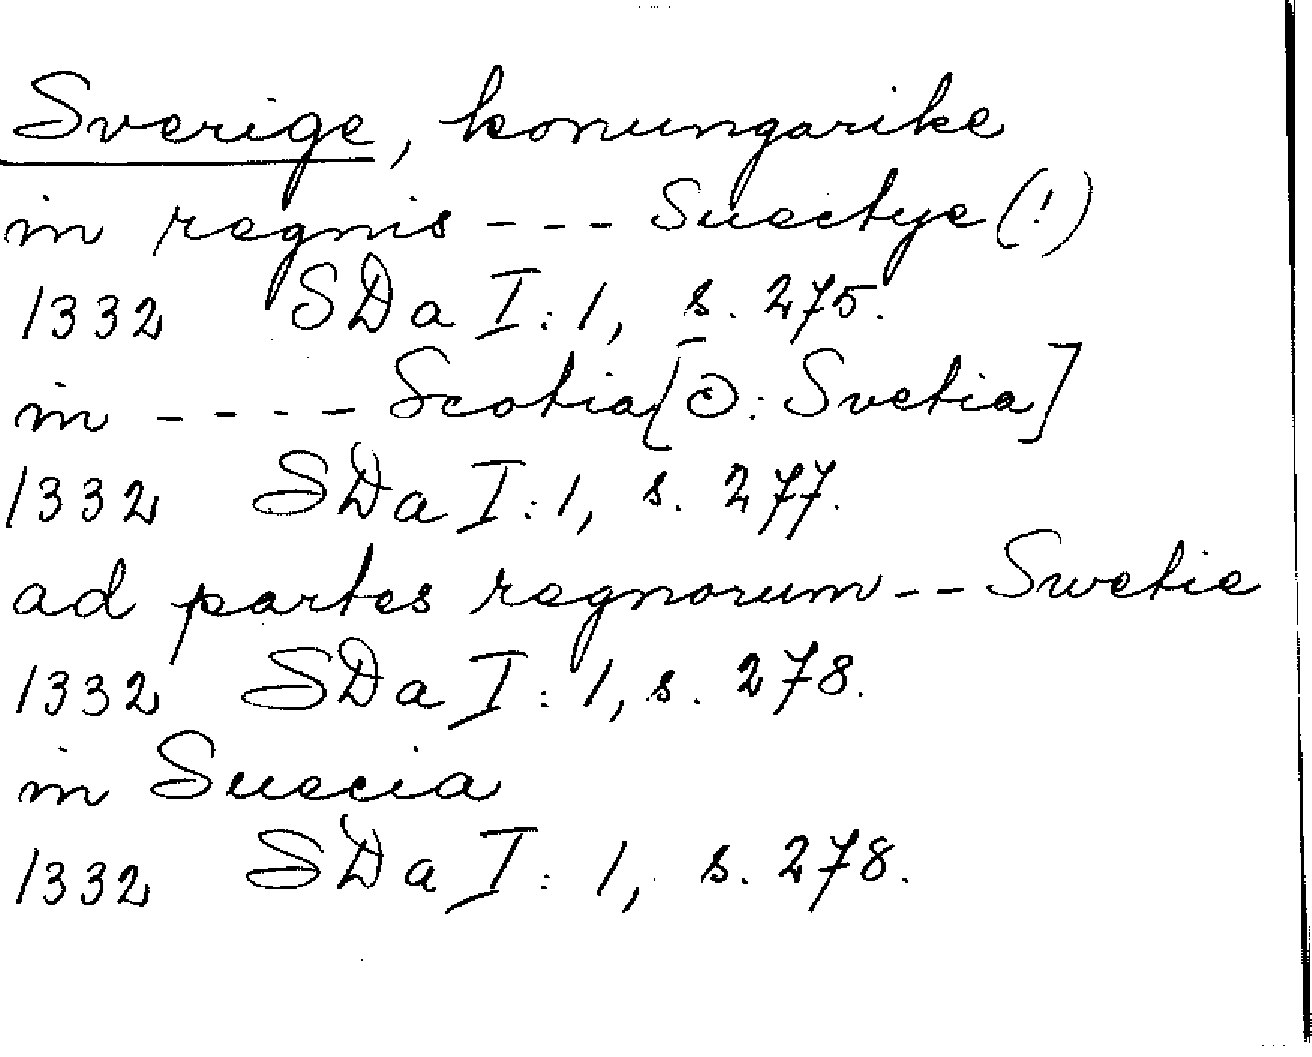 Sverige, konungarike
in regnis --- Suectye (!)
1332 SDa I:1, s. 275.
in ---- Scotia [ɔ: Svetia]
1332 SDa I:1, s. 277.
ad partes regnorum -- Swetie
1332 SDa I:1, s. 278.
in Suecia
1332 SDa I:1, s. 278.